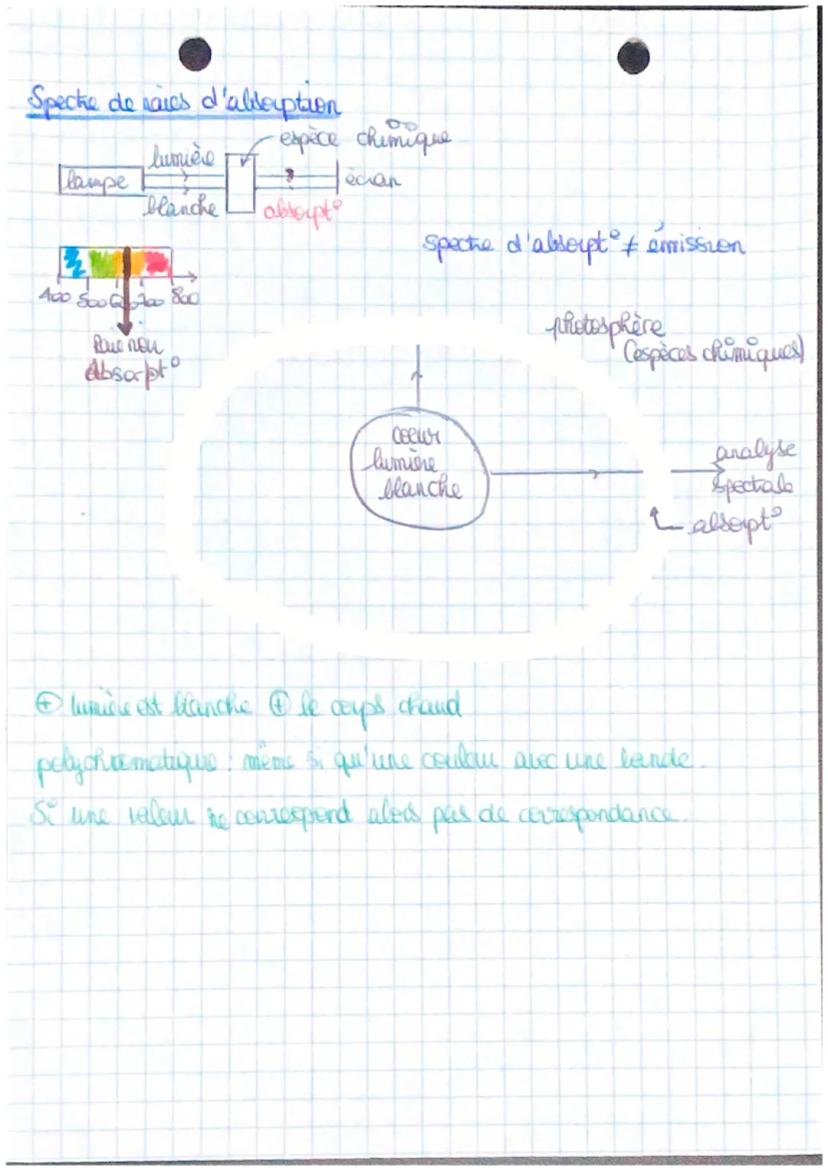 Spectre de raies d'absorption
espèce chimique
lumière
lampe
écran
blanche
absorpt°
spectre d'absorpt° ≠ émission
400 500 6 700 800
Raie noir
Absorpt°
photosphère
(espèces chimiques)
coeur
lumière
blanche
analyse
spectrale
absorpt°
⊕ lumière est blanche ⊕ le corps chaud
polychromatique : même si qu'une couleur avec une bande.
Si une valeur ne correspond alors pas de correspondance.